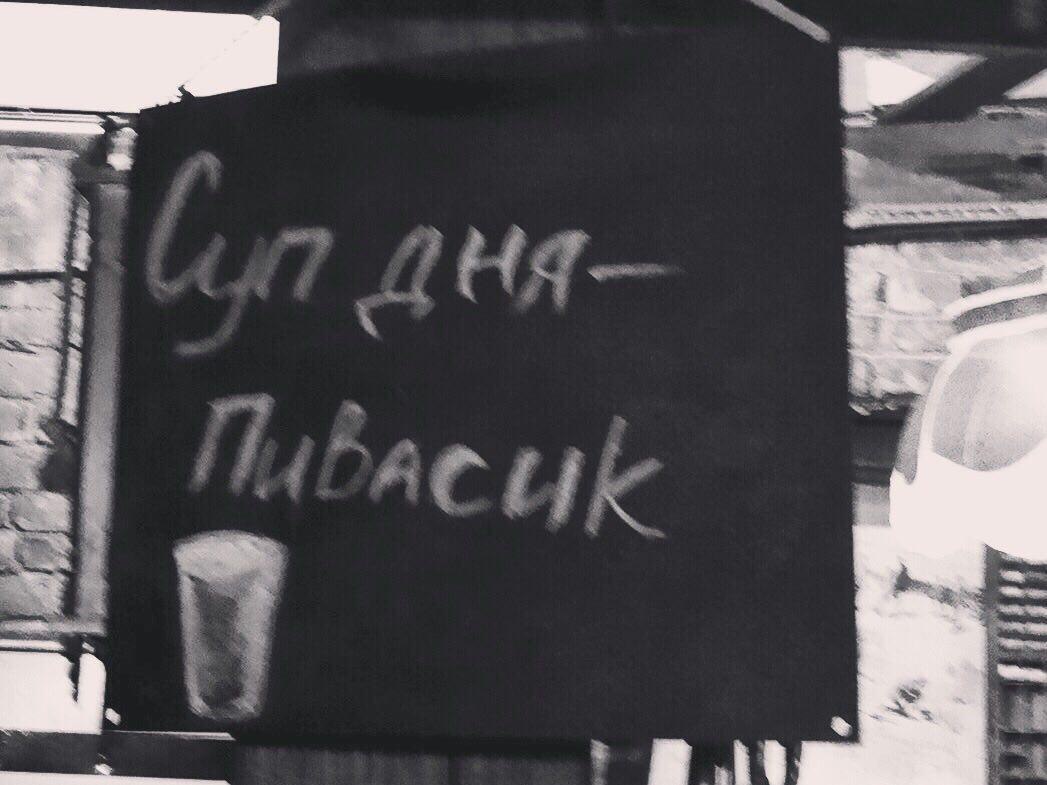 Суп дня —
Пивасик